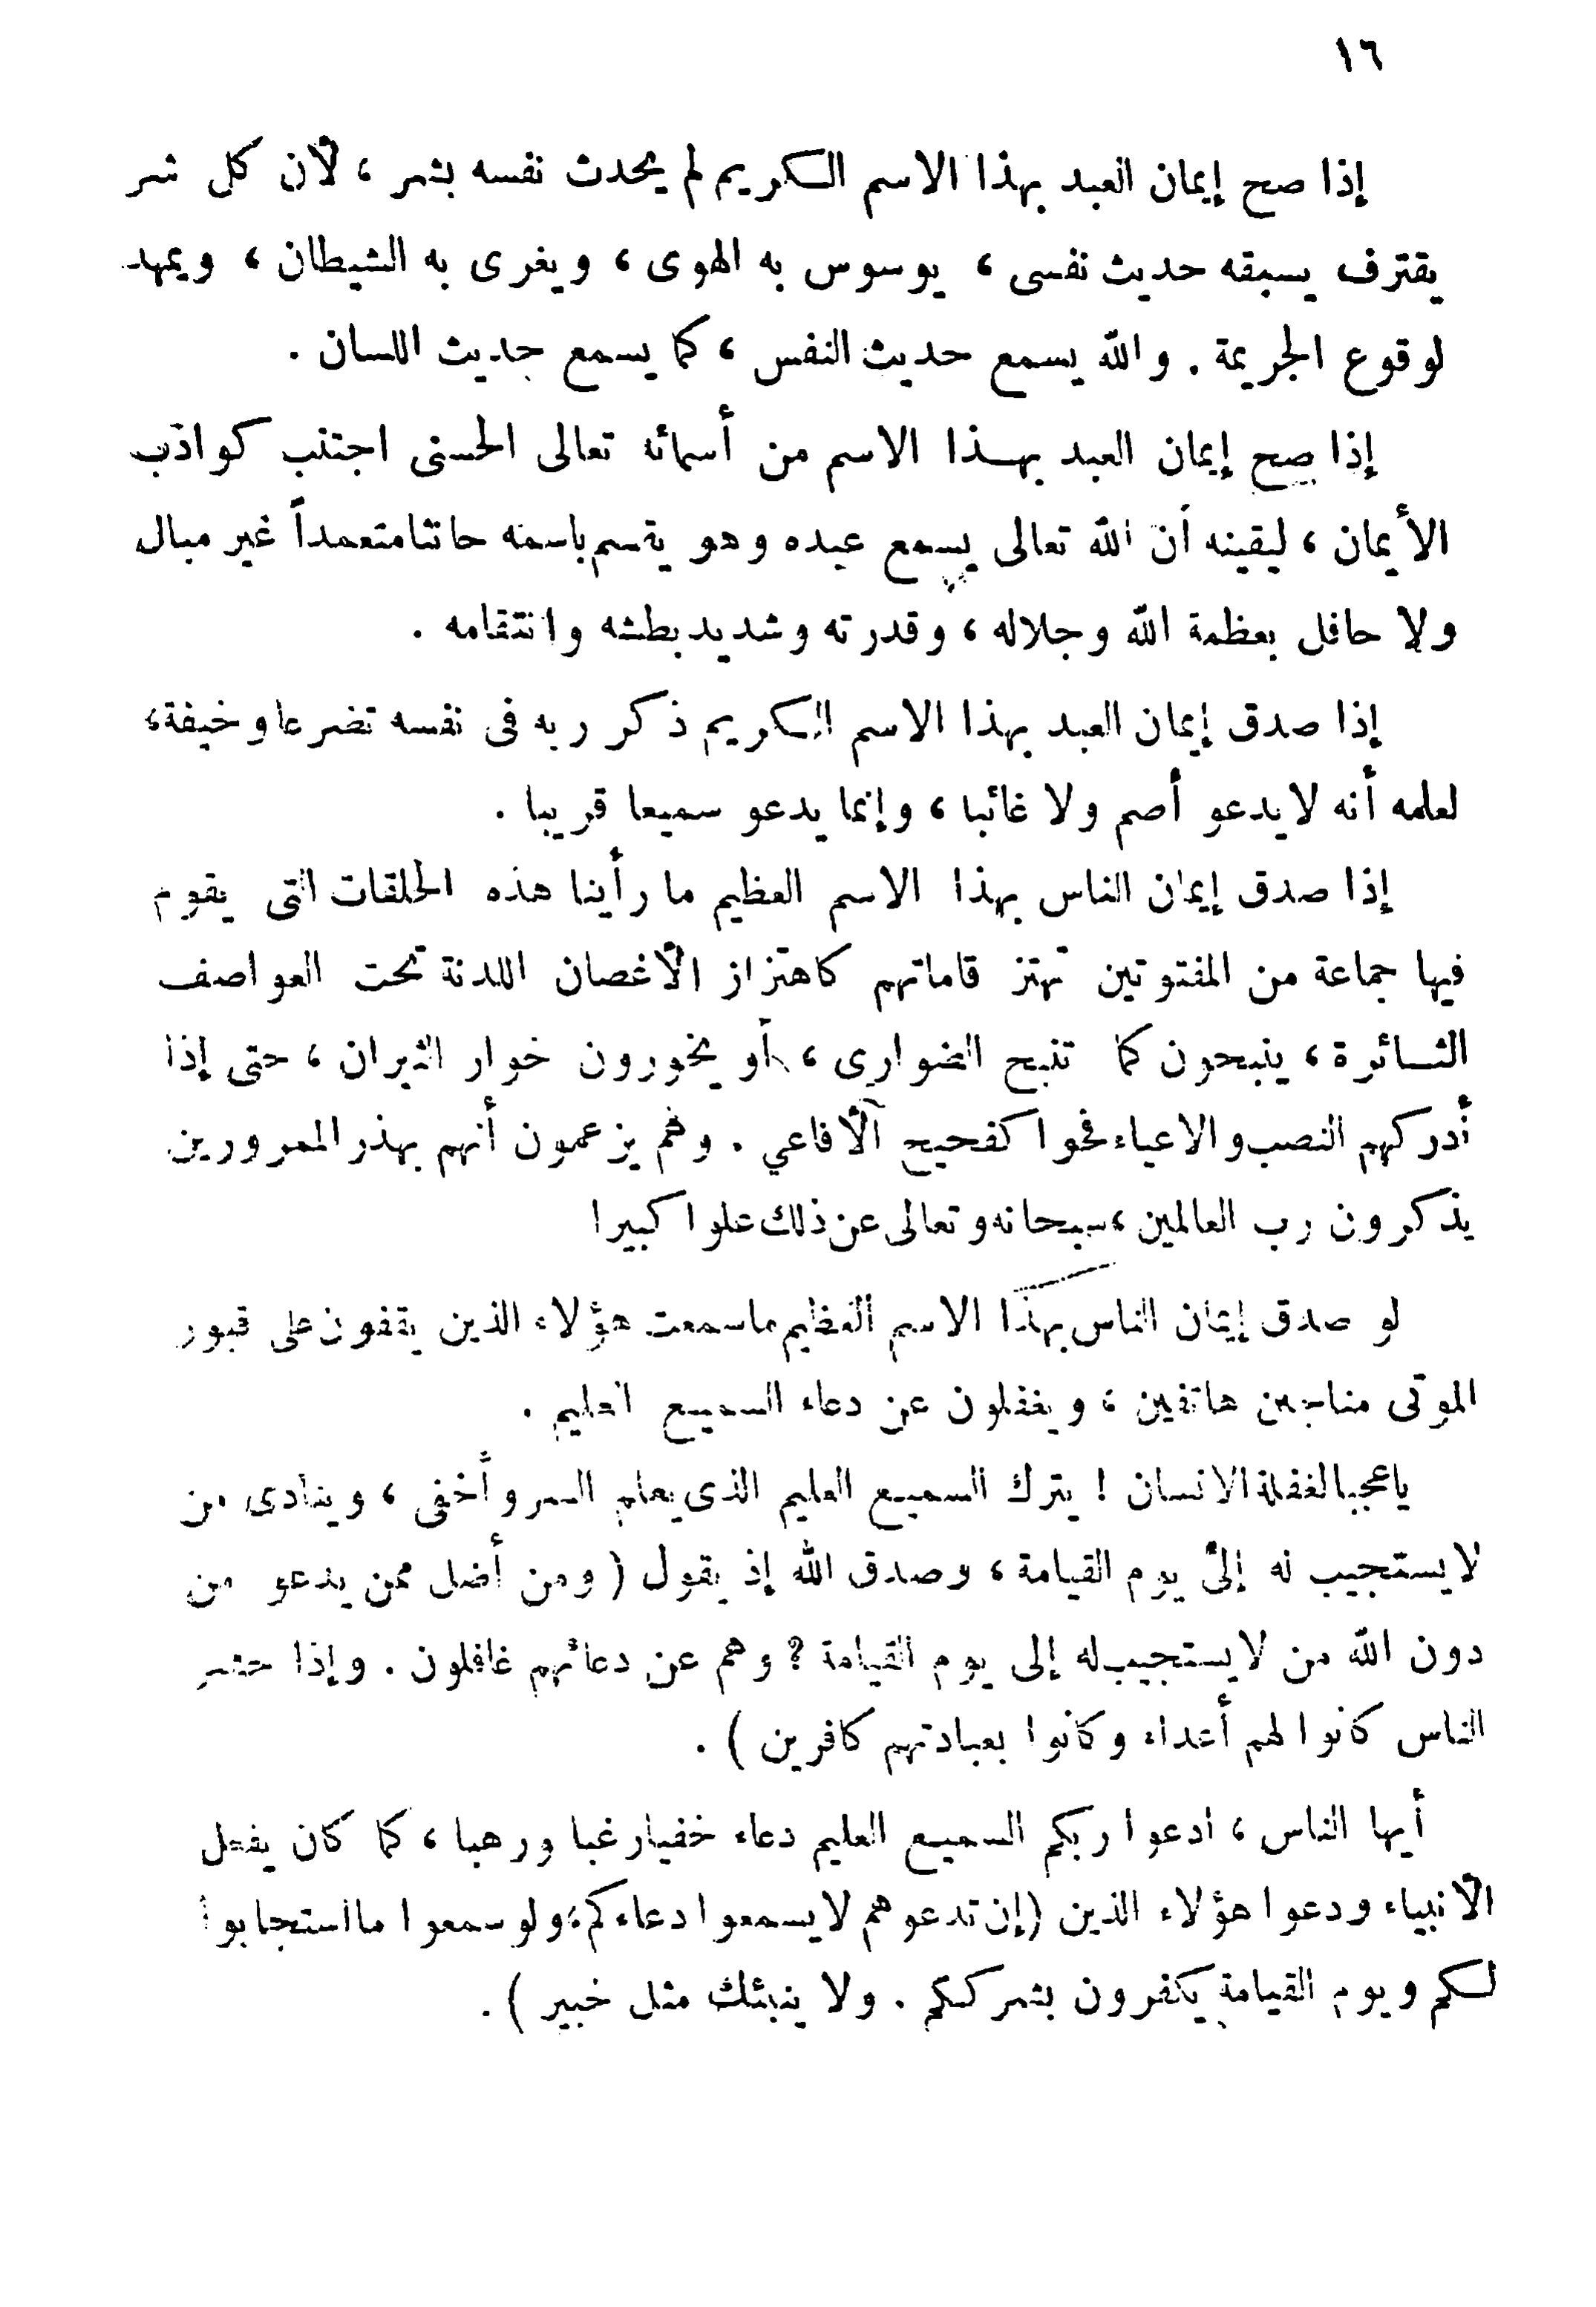 ١٦
إذا صح إيمان العبد بهذا الاسم الكريم لم يحدث نفسه بشر ، لأن كل شر
يقترف يسبقه حديث نفسى ، يوسوس به الهوى ، ويغرى به الشيطان ، ويمهد
لوقوع الجريمة . والله يسمع حديث النفس ، كما يسمع حديث اللسان .
إذا صح إيمان العبد بهذا الاسم من أسمائه تعالى الحسنى اجتنب كواذب
الأيمان ، ليقينه أن الله تعالى يسمع عبده وهو يقسم باسمه حانثا متعمداً غير مبال
ولا حافل بعظمة الله وجلاله ، وقدرته وشديد بطشه وانتقامه .
إذا صدق إيمان العبد بهذا الاسم الكريم ذكر ربه فى نفسه تضرعا وخيفة ،
لعلمه أنه لا يدعو أصم ولا غائبا ، وإنما يدعو سميعا قريبا .
إذا صدق إيمان الناس بهذا الاسم العظيم ما رأينا هذه الحلقات التى يقوم
فيها جماعة من المفتونين تهتز قاماتهم كاهتزاز الأغصان اللدنة تحت العواصف
الثائرة ، ينبحون كما تنبح الضوارى ، أو يخورون خوار الثيران ، حتى إذا
أدركهم النصب والاعياء فحوا كفحيح الأفاعي . وهم يزعمون أنهم بهذر الممرورين
يذكرون رب العالمين ، سبحانه وتعالى عن ذلك علوا كبيرا
لو صدق إيمان الناس بهذا الاسم العظيم ما سمعت هؤلاء الذين يقفون على قبور
الموتى مناجين هاتفين ، ويغفلون عن دعاء السميع العليم .
يا عجبا لغفلة الانسان ! يترك السميع العليم الذى يعلم السر وأخفى ، وينادى من
لا يستجيب له إلى يوم القيامة ، وصدق الله إذ يقول ( ومن أضل ممن يدعو من
دون الله من لا يستجيب له إلى يوم القيامة ؟ وهم عن دعائهم غافلون . وإذا حشر
الناس كانوا لهم أعداء وكانوا بعبادتهم كافرين ) .
أيها الناس ، ادعوا ربكم السميع العليم دعاء خفيا رغبا ورهبا ، كما كان يفعل
الأنبياء ودعوا هؤلاء الذين ( إن تدعوهم لا يسمعوا دعاءكم ، ولو سمعوا ما استجابوا
لكم ويوم القيامة يكفرون بشرككم . ولا ينبئك مثل خبير ) .